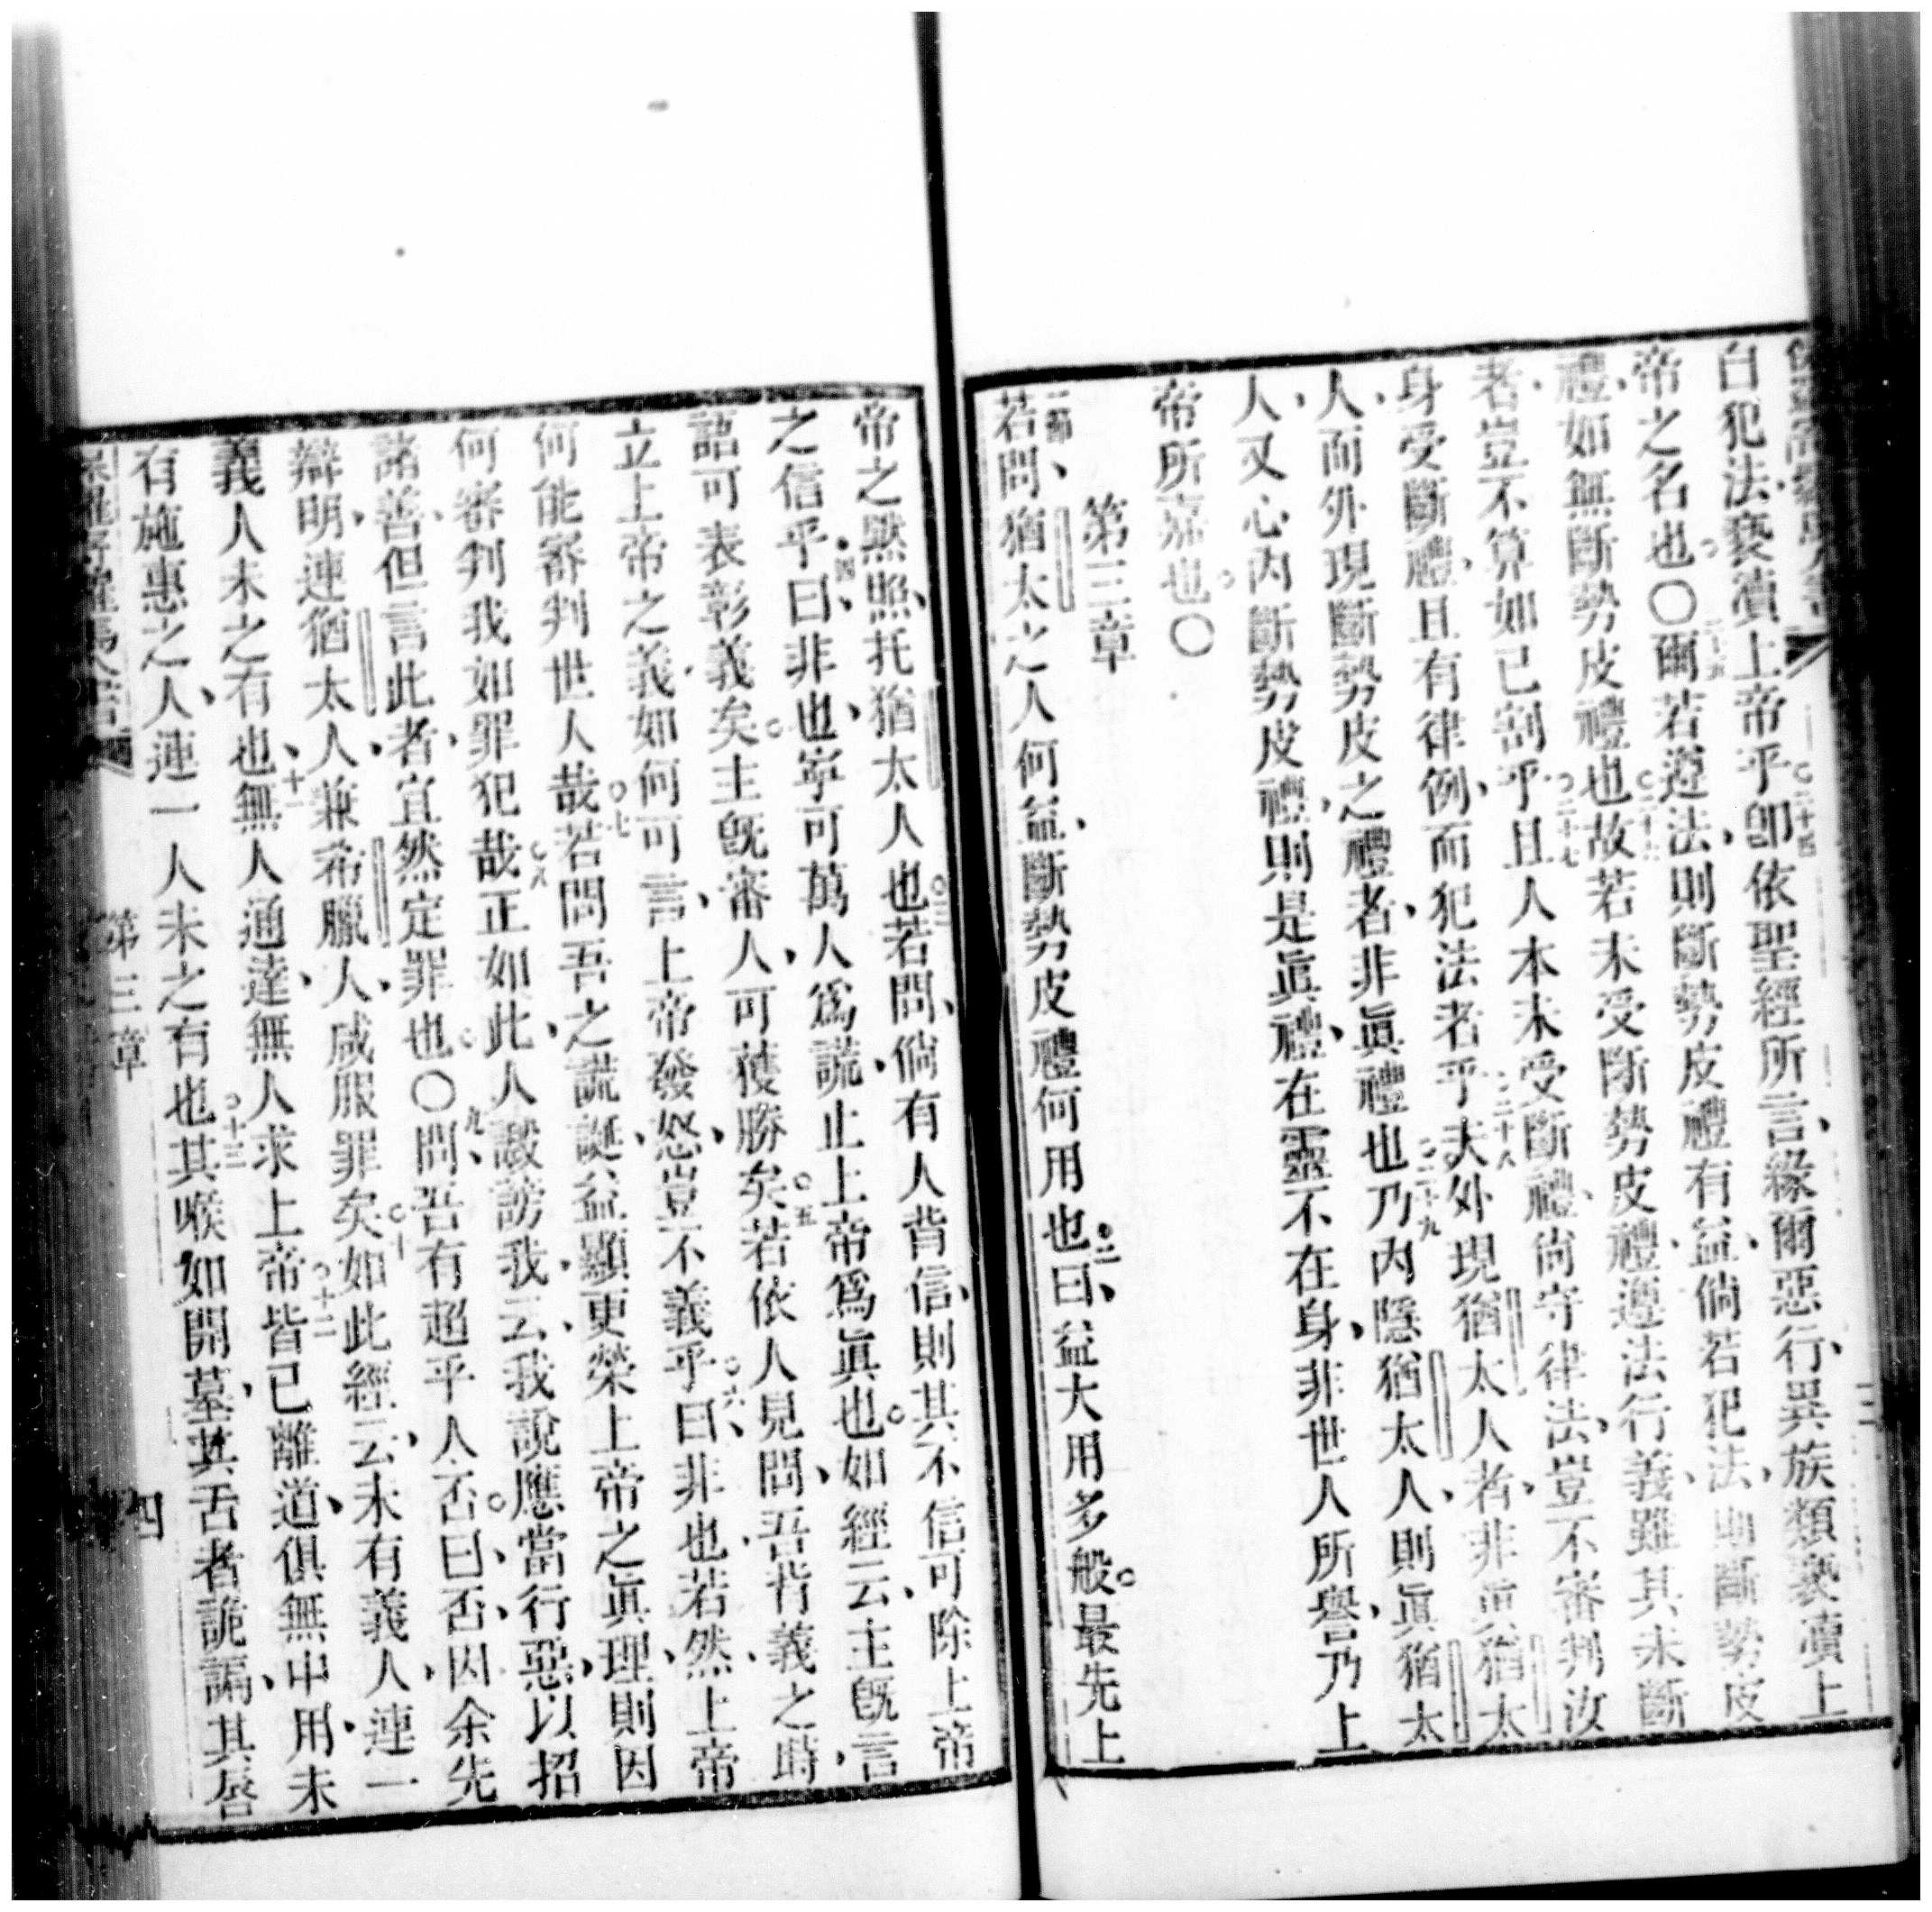 白犯法褻瀆上帝乎○二十四卽依聖經所言、緣爾惡行、異族類褻瀆上
帝之名也○二十五爾若遵法、則斷勢皮禮有益、倘若犯法、則斷勢皮
禮、如無斷勢皮禮也○二十六故若未受斷勢皮禮、遵法行義、雖其未斷
者、豈不算如已割乎○二十七且人本未受斷禮、尙守律法、豈不審判汝
身受斷禮、且有律例、而犯法者乎○二十八夫外現猶太人者、非眞猶太
人、而外現斷勢皮之禮者、非眞禮也○二十九乃內隱猶太人、則眞猶太
人、又心內斷勢皮禮、則是眞禮、在靈不在身、非世人所譽、乃上
帝所嘉也○
第三章
一節、若問猶太之人何益、斷勢皮禮何用也○二、曰、益大用多般○最先上
帝之默照、托猶太人也○三若問、倘有人背信、則其不信可除上帝
之信乎四、曰、非也、寧可萬人爲謊、止上帝爲眞也○如經云、主旣言
語可表彰義矣○主旣審人、可獲勝矣○五若依人見問、吾背義之時、
立上帝之義、如何可言、上帝發怒、豈不義乎○六、曰、非也、若然、上帝
何能審判世人哉○七若問吾之謊誕、益顯更榮上帝之眞理、則因
何審判我如罪犯哉○八正如此、人譭謗我、云、我說應當行惡、以招
諸善、但言此者、宜然定罪也○九、問、吾有超乎人否○曰、否、因余先
辯明、連猶太人、兼希臘人、咸服罪矣○十如此經云、未有義人、連一
義人未之有也、十一無人通達、無人求上帝○十二皆已離道、俱無中用、未
有施惠之人、連一人未之有也○十三其喉如開墓、其舌者詭譎、其唇
第三章
四